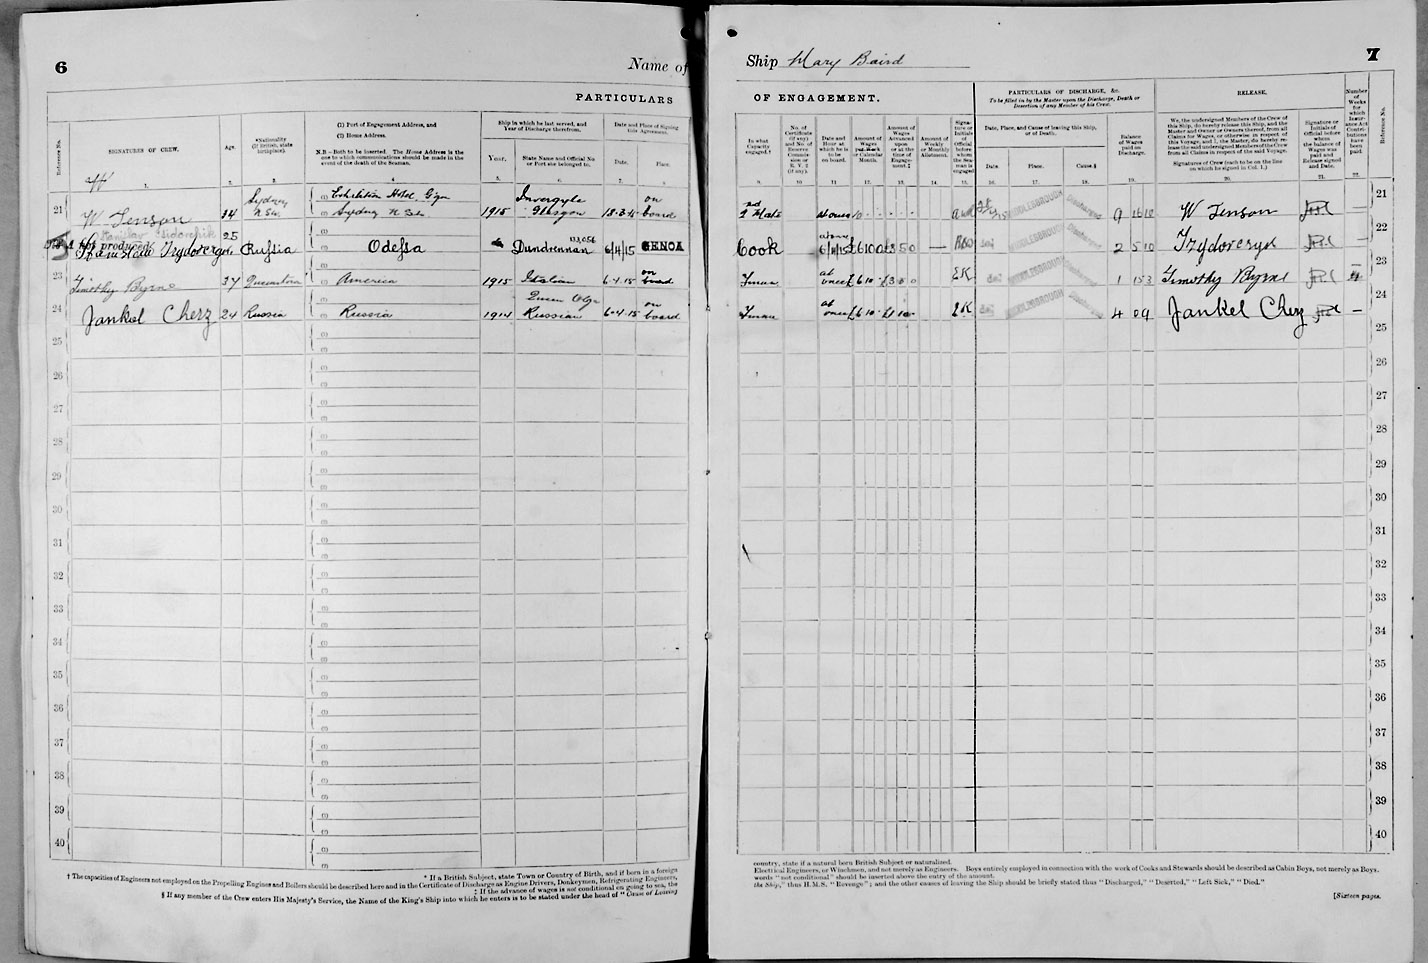 6
Name of
PARTICULARS
Reference No.
SIGNATURES OF CREW.
Age.
*Nationality
(If British, state
birthplace).
(1) Port of Engagement Address, and
(2) Home Address.
N.B.—Both to be inserted. The Home Address is the
one to which communications should be made in the
event of the death of the Seaman.
Ship in which he last served, and
Year of Discharge therefrom.
Year.
State Name and Official No.
or Port she belonged to.
Date and Place of Signing
this Agreement.
Date.
Place.
1. 2. 3. 4 5. 6. 7. 8.
W
21
W Jenson
34
Sydney
N.S.W.
(1) Exhibition Hotel
(2) Sydney N.S.W.
1915
Invergyle
Glasgow
18-3-15
on
board
22
not produced
25
Russia
Odessa
Dundrennan
133,056
6/4/15
GENOA
23
Timothy Byrne
37
Queenstown
America
1915
Italian
6-4-15
on
board
24
Jankel Cherz
24
Russia
Russia
1914
Queen Olga
Russian
6-4-15
on
board
25
26
27
28
29
30
31
32
33
34
35
36
37
38
39
40
* If a British Subject, state Town or Country of Birth, and if born in a foreign
† The capacities of Engineers not employed on the Propelling Engines and Boilers should be described here and in the Certificate of Discharge as Engine Drivers, Donkeymen, Refrigerating Engineers,
‡ If the advance of wages is not conditional on going to sea, the
§ If any member of the Crew enters His Majesty's Service, the Name of the King's Ship into which he enters is to be stated under the head of "Cause of Leaving
Ship Mary Baird
7
OF ENGAGEMENT.
PARTICULARS OF DISCHARGE, &c.
To be filled in by the Master upon the Discharge, Death or
Desertion of any Member of his Crew.
RELEASE.
Number
of
Weeks
for
which
Insur-
ance Act
Contri-
butions
have
been
paid.
Reference No.
In what
Capacity
engaged.†
No. of
Certificate
(if any)
and No. of
Reserve
Commis-
sion or
R. V. 2
(if any).
Date and
Hour at
which he is
to be
on board.
Amount of
Wages
per Week
or Calendar
Month.
Amount of
Wages
Advanced
upon
or at the
time of
Engage-
ment.‡
Amount of
Weekly
or Monthly
Allotment.
Signa-
ture or
Initials
of
Official
before
whom
the Sea-
man is
engaged
Date, Place, and Cause of leaving this Ship,
or of Death.
Date.
Place.
Cause.§
Balance
of Wages
paid on
Discharge.
We, the undersigned Members of the Crew of
this Ship, do hereby release this Ship, and the
Master and Owner or Owners thereof, from all
Claims for Wages, or otherwise, in respect of
this Voyage, and I, the Master, do hereby re-
lease the said undersigned Members of the Crew
from all Claims in respect of the said Voyage.
Signatures of Crew (each to be on the line
on which he signed in Col. 1.)
Signature or
Initials of
Official before
whom
the balance of
Wages was
paid and
Release signed
and Date.
9. 10 11. 12. 13. 14. 15. 16. 17. 18. 19. 20. 21. 22.
21
2nd Mate
at once
10
MIDDLESBROUGH
Discharged
9 16 10
W Jenson
22
Cook
6/4/15
£6 10 0
£3 5 0
—
MIDDLESBROUGH
Discharged
2 5 10
—
23
Fireman
at
once
£6 10
£3 5 0
EK
MIDDLESBROUGH
Discharged
1 15 3
Timothy Byrne
24
Fireman
at
once
£6 10
EK
MIDDLESBROUGH
Discharged
4 0 9
Jankel Cherz
—
25
26
27
28
29
30
31
32
33
34
35
36
37
38
39
40
country, state if a natural born British Subject or naturalized.
Electrical Engineers, or Winchmen, and not merely as Engineers. Boys entirely employed in connection with the work of Cooks and Stewards should be described as Cabin Boys, not merely as Boys.
words "not conditional" should be inserted above the entry of the amount.
the Ship," thus H.M.S. "Revenge"; and the other causes of leaving the Ship should be briefly stated thus "Discharged," "Deserted," "Left Sick," "Died."
[Sixteen pages.